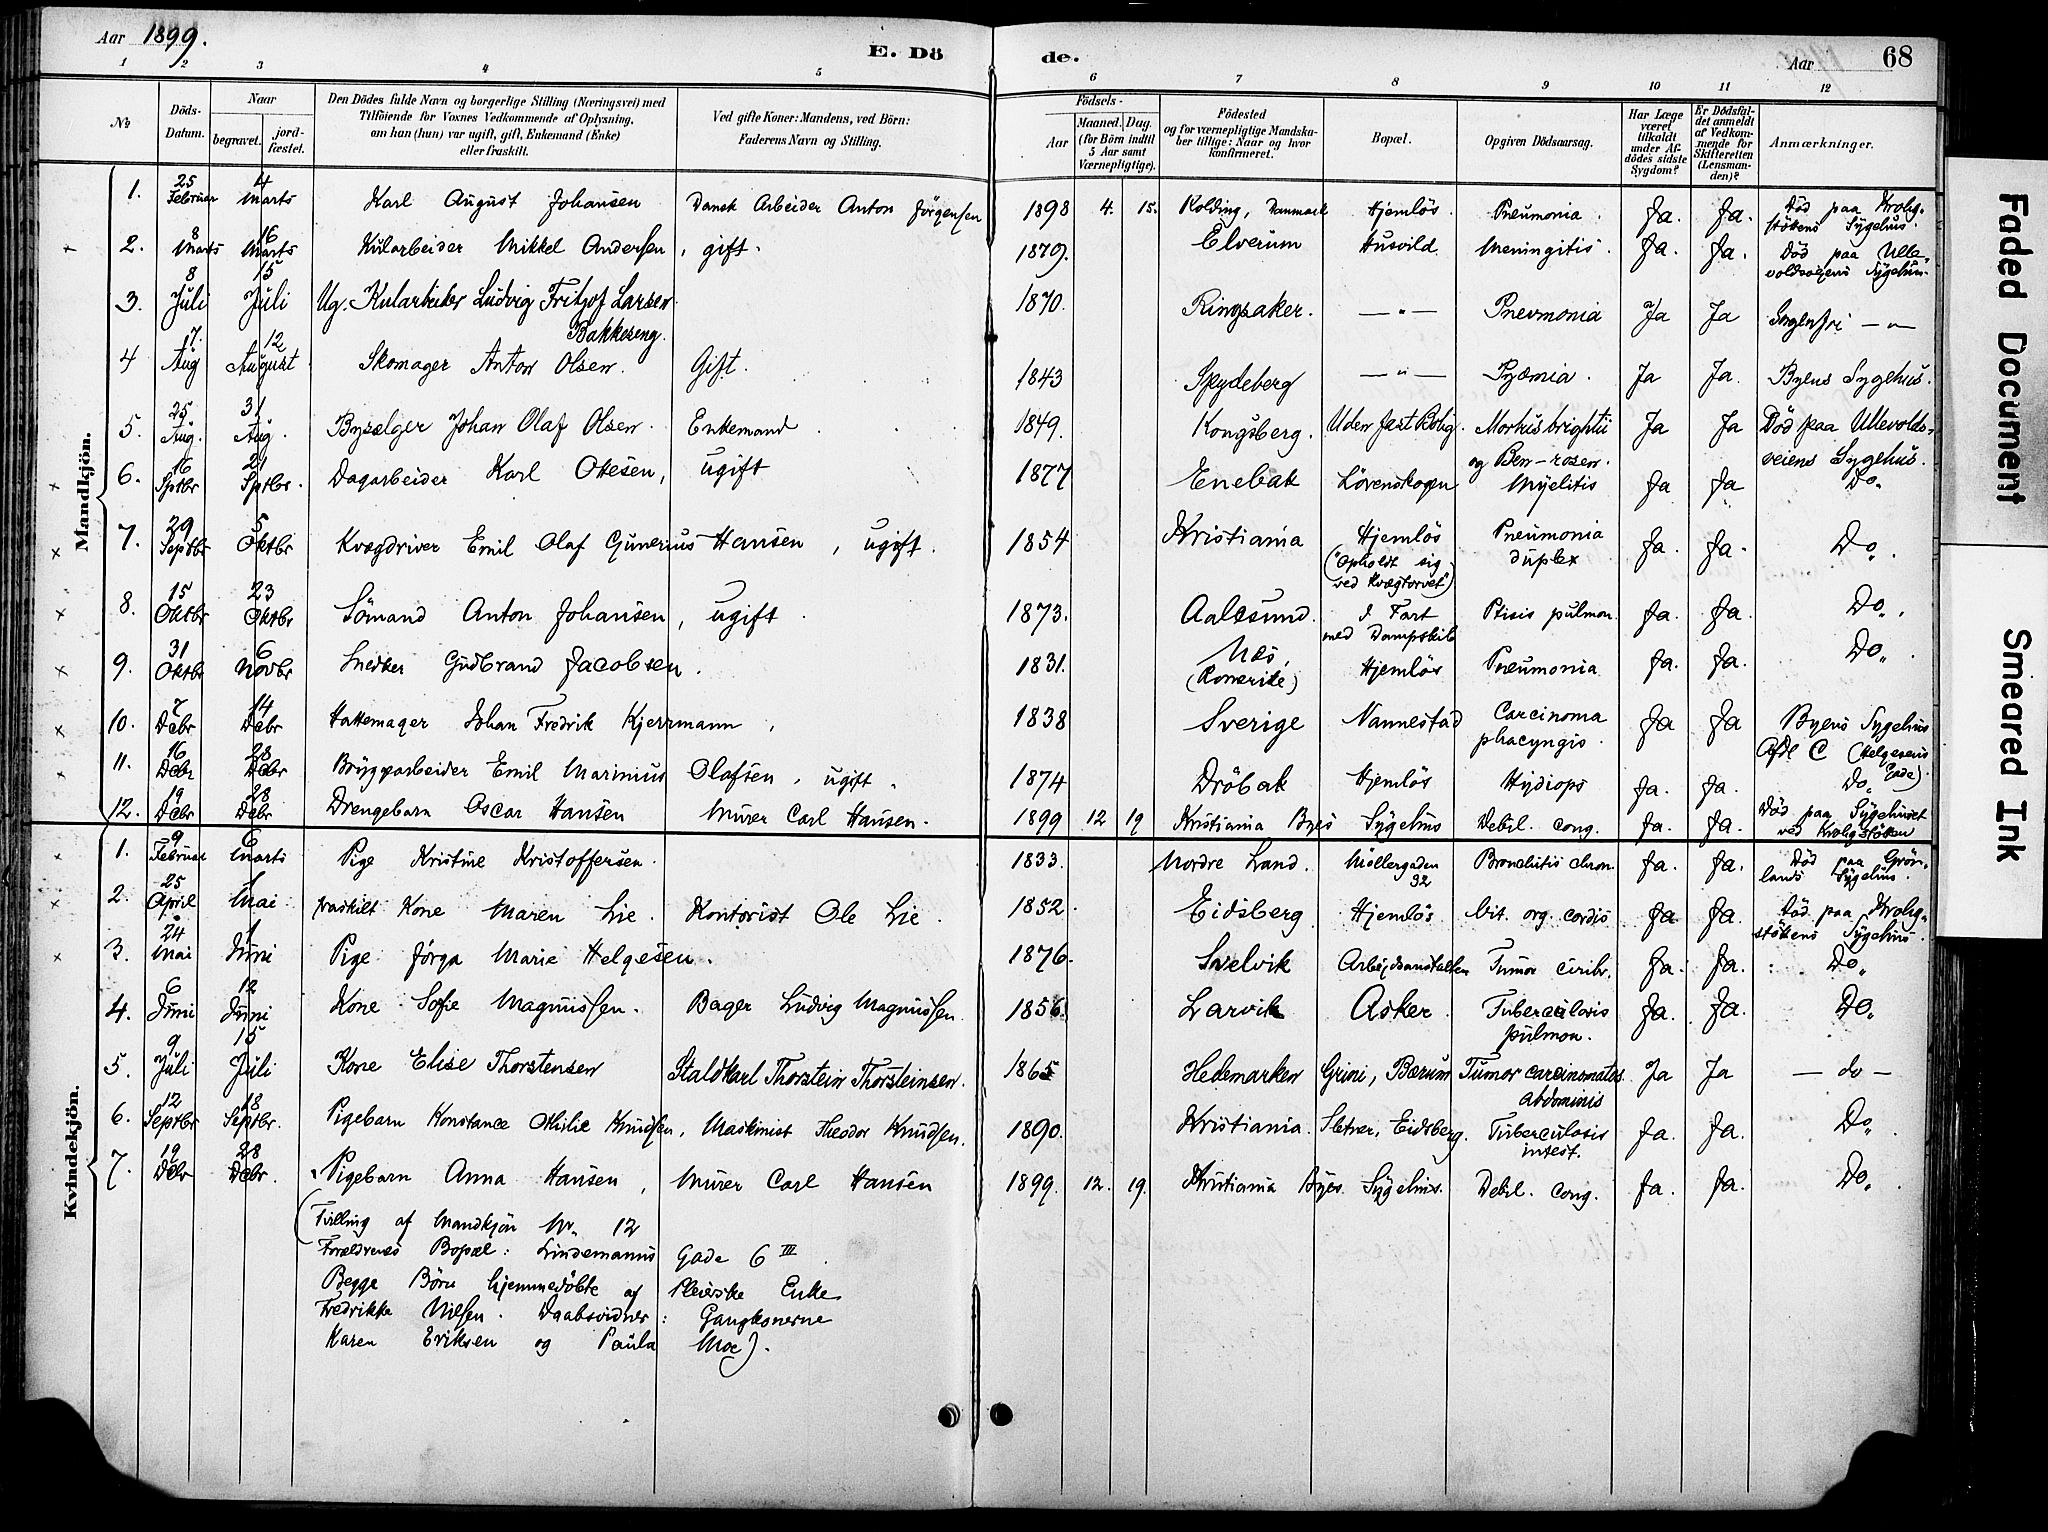 Aar 1899.
E. Dö
de.
Aar
68
1 2 3 4 5 6 7 8 9 10 11 12
№
Döds-Datum.
Naar
begravet.
jord-fæstet.
Den Dödes fulde Navn og borgerlige Stilling (Næringsvei) med
Tilföiende for Voxnes Vedkommende af Oplysning,
om han (hun) var ugift, gift, Enkemand (Enke)
eller fraskilt.
Ved gifte Koner: Mandens, ved Börn:
Faderens Navn og Stilling.
Födsels-
Aar
Maaned. Dag.
(for Börn indtil
5 Aar samt
Værnepligtige).
Födested
og for værnepligtige Mandska-
ber tillige: Naar og hvor
konfirmeret.
Bopæl.
Opgiven Dödsaarsag.
Har Læge
været
tilkaldt
under Af-
dödes sidste
Sygdom?
Er Dödsfal-
det anmeldt
af Vedkom-
mende for
Skifteretten
(Lensman-
den)?
Anmærkninger.
Mandkjön.
1. 25 Februar 4 Marts Karl August Johansen Dansk Arbeider Anton Jörgensen 1898 4. 15. Kolding, Danmark Hjemlös. Pneumonia. Ja. Ja. Död paa Krohg-
stöttens Sygehus.
2. 8 Marts 16 Marts Kularbeider Mikkel Andersen, gift. 1879. Elverum Husvild Meningitis. Ja. Ja. Död paa Ulle-
voldsveiens Sygehus.
3. 8 Juli 15 Juli Ug. Kularbeider Ludvig Fritzof Larsen 1870. Ringsaker. — " — Pneumonia Ja Ja — " —
Bakkeeng.
4 7. Aug 12 August Skomager Anton Olsen. Gift. 1843 Spydeberg — " — Pyæmia. Ja Ja. Byens Sygehus.
5. 25 Aug. 31 Aug. Bysælger Johan Olaf Olsen. Enkemand. 1849. Kongsberg. Uden fast Bolig. Morbus brightii Ja Ja Död paa Ullevolds-
og Ben-rosen. veiens Sygehus.
6. 16 Sptbr 21 Sptbr. Dagarbeider Karl Olesen, ugift 1877 Enebak Lörenskogen Myelitis Ja Ja Do.
7. 29 Septbr 5 Oktbr Kvægdriver Emil Olaf Gunerius Hansen, ugift. 1854 Kristiania Hjemlös Pneumonia Ja. Ja. Do.
("opholdt sig duplex
ved Kvægtorvet")
8. 15 Oktbr 23 Oktbr Sömand Anton Johansen, ugift. 1873. Aalesund. I Fart Ptisis pulmon. Ja. Ja. Do.
med Dampskib
9. 31 Oktbr 6 Novbr Snedker Gudbrand Jacobsen. 1831. Næs, Hjemlös Pneumonia Ja. Ja. Do.
(Romerike)
10. 7 Debr 14 Debr Hattemager Johan Fredrik Kjerrmann, 1838 Sverige Nannestad Carcinoma Ja Ja Byens Sygehus
pharyngis. Afdl C (Helgesens
11. 16 Debr 28 Debr Bryggarbeider Emil Marinius Olafsen, ugift. 1874 Dröbak Hjemlös Hydrops Ja. Ja. Do. Gade).
12. 19 Debr 28 Debr Drengebarn Oscar Hansen Murer Carl Hansen. 1899 12 19 Kristiania Byes Sygehus Debil. cong. Ja. Ja. Död paa Sygehuset
ved Krohgstötten
Kvindekjön.
1. 9 Februar 6 Marts Pige Kristine Kristoffersen. 1833. Nordre Land. Möllergaden Bronchitis chron. Ja. Ja. Död paa Grön-
32 lands Sygehus.
2. 25 April 1 Mai fraskilt Kone Maren Lie. Kontorist Ole Lie. 1852. Eidsberg Hjemlös. Vit. org. cordis Ja Ja. Död paa Krohg-
stöttens Sygehus.
3. 24 Mai 1 Juni Pige Jörga Marie Helgesen. 1876. Svelvik Arbejdsanstalten Tumor cerebr. Ja. Ja. Do.
4. 6 Juni 12 Juni Kone Sofie Magnussen. Bager Ludvig Magnussen. 1856. Larvik Asker. Tuberculosis Ja. Ja. Do.
pulmon.
5. 9 Juli 15 Juli Kone Elise Thorstensen Staldkarl Thorstein Thorsteinsen. 1865 Hedemarken Grini, Bærum Tumor carcinomatos. Ja Ja — do —
abdominis
6. 12 Septbr 18 Septbr. Pigebarn Konstance Othilie Knudsen, Maskinist Theodor Knudsen. 1890. Kristiania. Eidsberg. Tuberculosis Ja. Ja. Do.
intest.
7. 19 Debr 28 Debr. Pigebarn Anna Hansen, Murer Carl Hansen 1899. 12. 19. Kristiania Byes Sygehus. Debil. cong. Ja. Ja. Do.
(Tvilling af Mandkjön Nr. 12
Forældrenes Bopæl: Lindemanns Gade 6 III.
Begge Börn hjemmedöbte af Pleierske Enke
Fredrikke Nilsen. Daabsvidner: Gangkonerne
Karen Eriksen og Paula Moe).
Faded Document
Smeared Ink